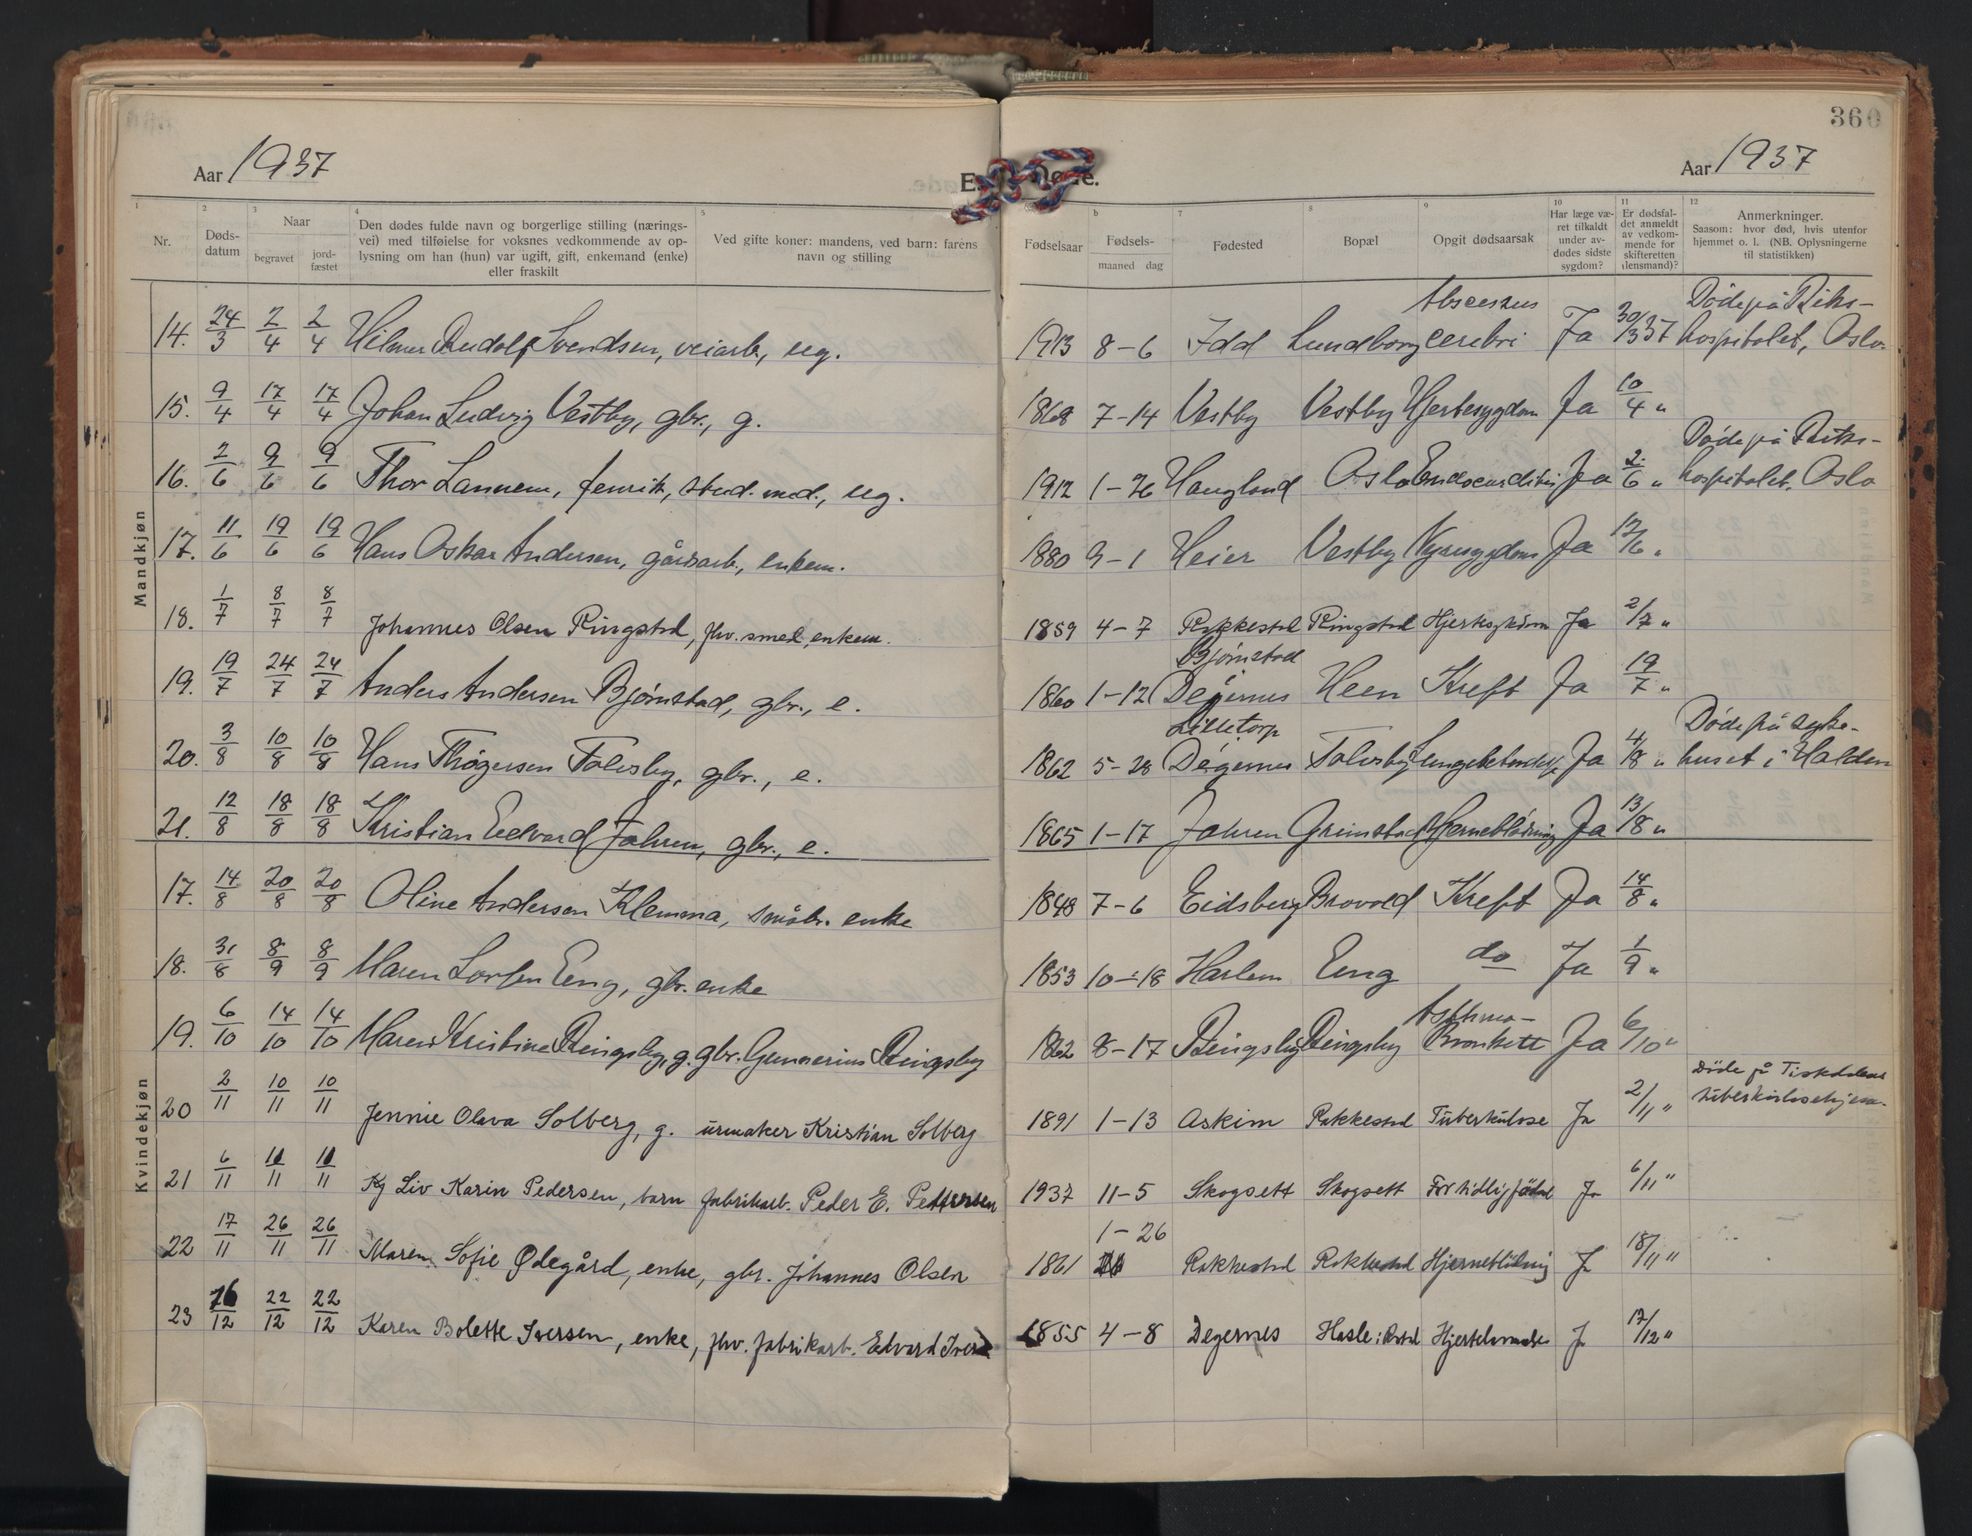 360
Aar 1937
Døde.
Aar 1937
1 2 3 4 5
b 7 8 9 10 11 12
Nr. Døds-datum Naar begravet jord-fæstet Den dødes fulde navn og borgerlige stilling (nærings-vei) med tilføielse for voksnes vedkommende av op-lysning om han (hun) var ugift, gift, enkemand (enke) eller fraskilt Ved gifte koner: mandens, ved barn: farens navn og stilling
Fødselsaar Fødsels- maaned dag Fødested Bopæl Opgit dødsaarsak Har læge væ-ret tilkaldt under av-dødes sidste sygdom? Er dødsfal-det anmeldt av vedkom-mende for skifteretten (lensmand)? Anmerkninger. Saasom: hvor død, hvis utenfor hjemmet o. l. (NB. Oplysningerne til statistikken)
Mandkjøn
14. 24/3 2/4 2/4 Hilmar Rudolf Svendsen, veiarb., ug. 1913 8-6 Idd Lundborg Abscessus cerebri Ja 30/3 37 Døde på Riks-hospitalet, Oslo.
15. 9/4 17/4 17/4 Johan Ludvig Vestby, gbr., g. 1868 7-14 Vestby Vestby Hjertesygdom Ja 10/4 "
16. 2/6 9/6 9/6 Thor Lannem, fenrik, stud. med., ug. 1912 1-26 Haugland Oslo Endocarditis Ja 2/6 " Døde på Riks-hospitalet, Oslo
17. 11/6 19/6 19/6 Hans Oskar Andersen, gårdarb., enkem. 1880 9-1 Heier Vestby Nyresygdom Ja 12/6 "
18. 1/7 8/7 8/7 Johannes Olsen Ringstad, fhv. smed, enkem. 1859 4-7 Rakkestad Ringstad Hjertesykdom Ja 2/7 "
19. 19/7 24/7 24/7 Anders Andersen Bjørnstad, gbr., e. 1860 1-12 Bjørnstad Degernes Heen Kreft Ja 19/7 "
20. 3/8 10/8 10/8 Hans Thøgersen Tolvsby, gbr., e. 1862 5-28 Lilletorp Degernes Tolvsby Lungebetendelse Ja 4/8 " Døde på syke-huset i Halden
21. 12/8 18/8 18/8 Kristian Edvard Jahren, gbr., e. 1865 1-17 Jahren Grimstad Hjerneblødning Ja 13/8 "
Kvindekjøn
17. 14/8 20/8 20/8 Oline Andersen Klemma, småbr. enke 1848 7-6 Eidsberg Brovold Kreft Ja 14/8 "
18. 31/8 8/9 8/9 Maren Larsen Eng, gbr. enke 1853 10-18 Harlem Eng do Ja 1/9 "
19. 6/10 14/10 14/10 Maren Kristine Ringsby, g. gbr. Gunnerius Ringsby 1862 8-17 Ringsby Ringsby Asthma-Bronkitt Ja 6/10 "
20 2/11 10/11 10/11 Jennie Olava Solberg, g. urmaker Kristian Solberg 1891 1-13 Askim Rakkestad Tuberkulose Ja 2/11 " Døde på tuberkulosehjem.
21 6/11 11/11 11/11 Liv Karin Pedersen, barn fabrikarb. Peder E. Pettersen 1937 11-5 Skogsett Skogsett For tidlig født Ja 6/11 "
22 17/11 26/11 26/11 Maren Sofie Ødegård, enke, gbr. Johannes Olsen 1861 1-26 Rakkestad Rakkestad Hjerneblødning Ja 18/11 "
23 16/12 22/12 22/12 Karen Bolette Iversen, enke, fhv. fabrikarb. Edvard Iversen 1855 4-8 Degernes Hasle i Rkstd Ja 17/12 "